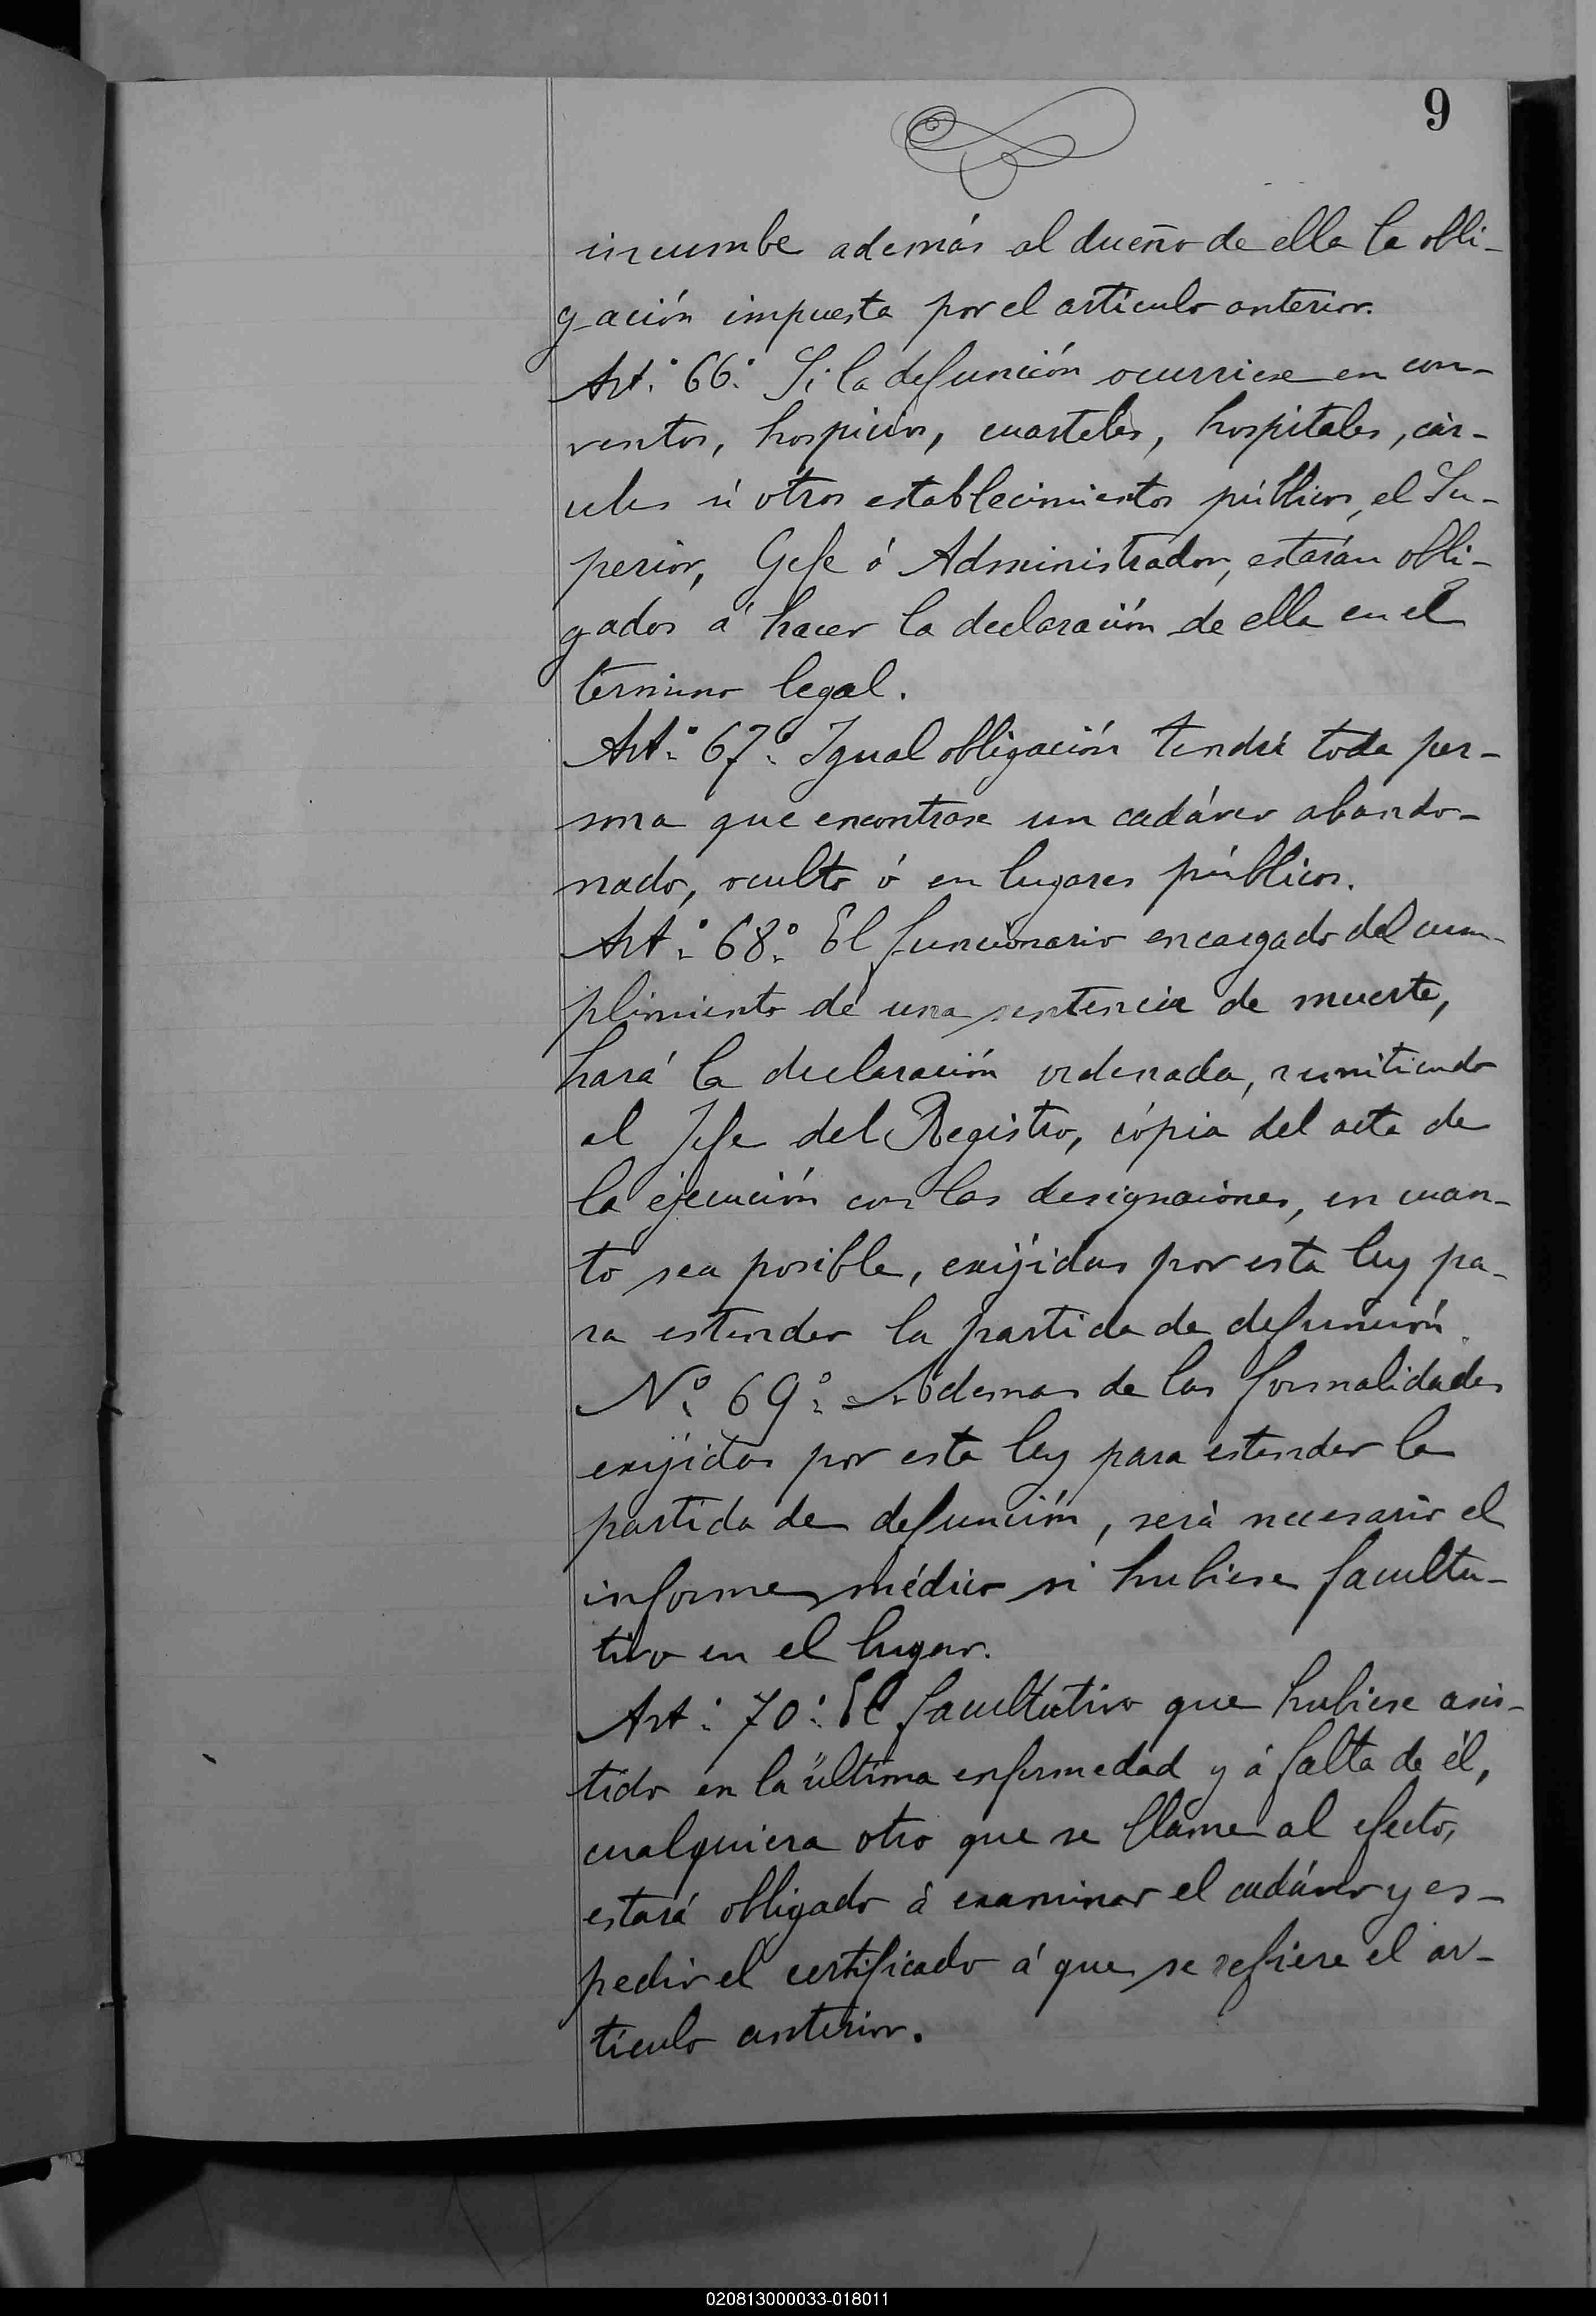 9
incumbe además al dueño de ella la obli-
gación impuesta por el artículo anterior.
Art.° 66.° Si la defunción ocurriese en con-
ventos, hospicios, cuarteles, hospitales, cár-
celes ú otros establecimientos públicos, el Su-
perior, Gefe ó Administrador, estarán obli-
gados á hacer la declaración de ella en el
término legal.
Art.° 67.° Igual obligación tendrá toda per-
sona que encontrase un cadáver abando-
nado, oculto ó en lugares públicos.
Art.° 68.° El funcionario encargado del cum-
plimiento de una sentencia de muerte,
hará la declaración ordenada, remitiendo
al Jefe del Registro, cópia del acta de
la ejecución con las designaciones, en cuan-
to sea posible, exijidas por esta ley pa-
ra estender la partida de defunción.
N.° 69.° Ademas de las formalidades
exijidas por esta ley para estender la
partida de defunción, será necesario el
informe médico si hubiese faculta-
tivo en el lugar.
Art.° 70.° El facultativo que hubiese asis-
tido en la última enfermedad y á falta de él,
cualquiera otro que se llame al efecto,
estará obligado á examinar el cadáver y es-
pedir el certificado á que se refiere el ar-
tículo anterior.
020813000033-018011